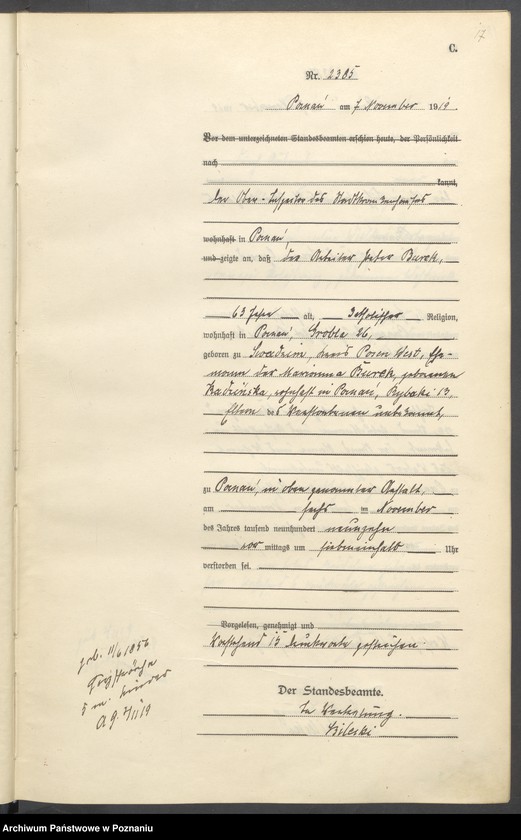 17
C.
Nr. 2385
Poznań am 7 November 1919.
Vor dem unterzeichneten Standesbeamten erschien heute, der Persönlichkeit
nach
kannt,
Der Ober-Inspektor des Stadtkrankenhauses
wohnhaft in Poznań,
und zeigte an, daß der Arbeiter Peter Burek,
63 Jahre alt, katholischer Religion,
wohnhaft in Poznań, Grobla 26,
geboren zu Swadzim, Kreis Posen West, Ehe-
mann der Marianna Burek, geborenen
Kadzińska, wohnhaft in Poznań, Rybaki 13,
Eltern des Verstorbenen unbekannt,
zu Poznań, in oben genannter Anstalt,
am sechs ten November
des Jahres tausend neunhundert neunzehn
vor mittags um siebeneinhalb Uhr
verstorben sei.
Vorgelesen, genehmigt und
Vorstehend 13 Druckworte gestrichen.
Der Standesbeamte.
In Vertretung.
geb. 11/6 1856
5 m. Kinder
A. G. 7/11 19
Archiwum Państwowe w Poznaniu